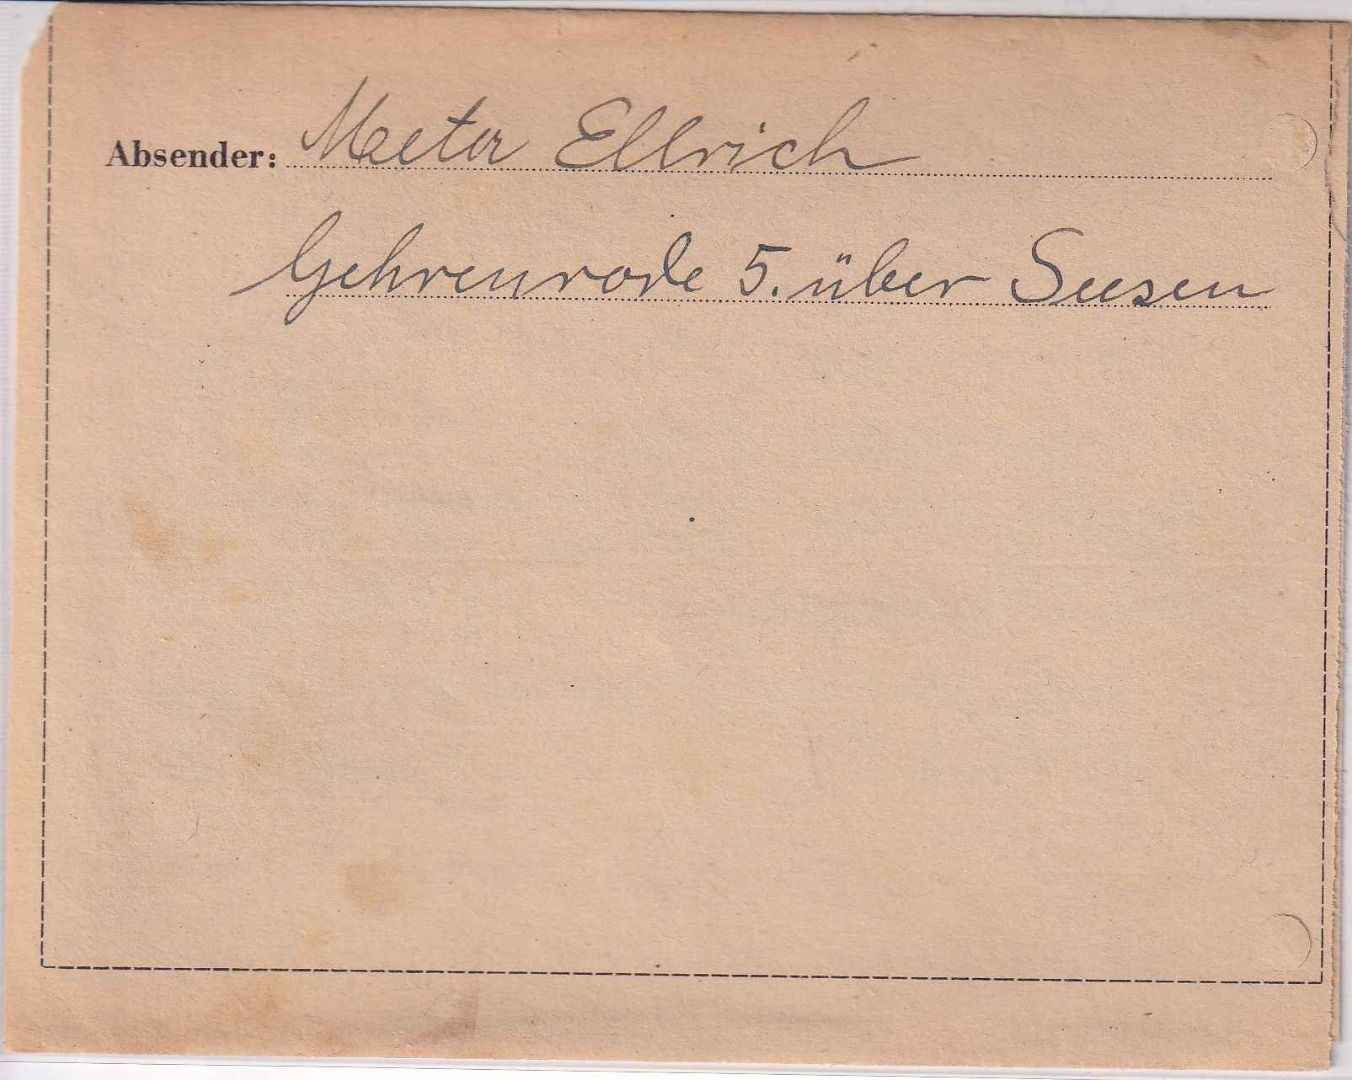 Absender: Meta Ellrich
Gehrenrode 5. über Seesen